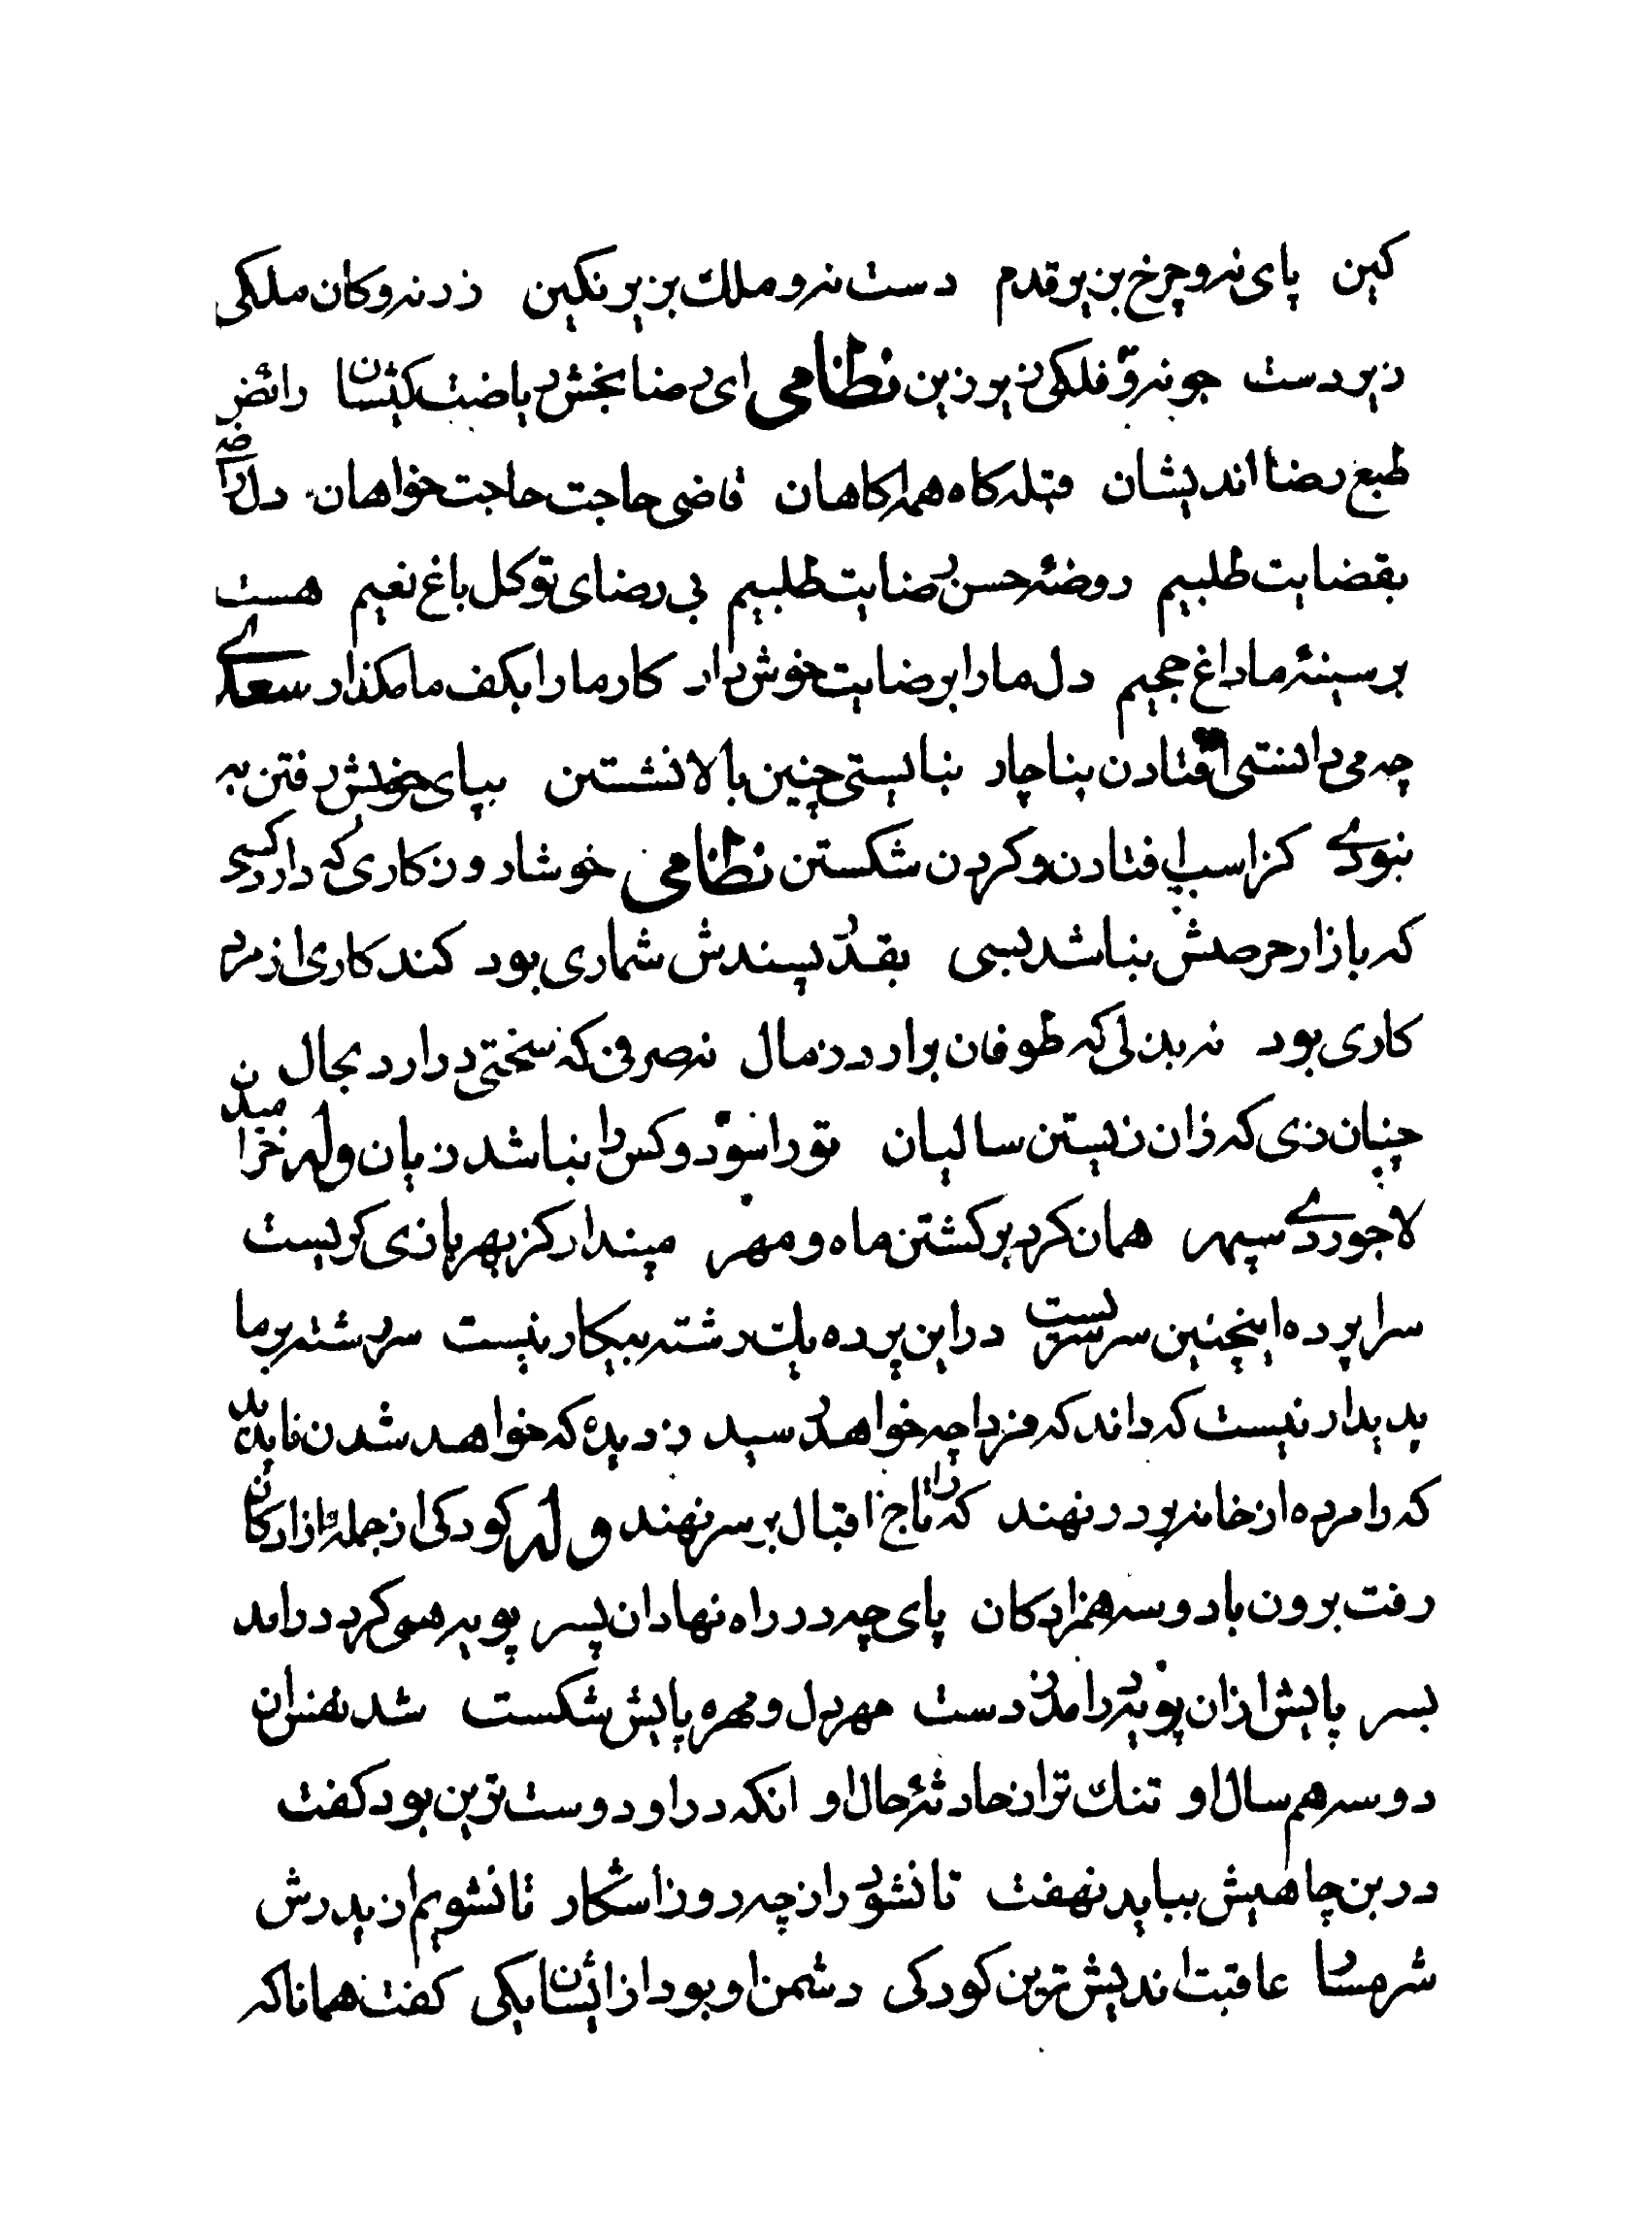 کین پای نه و چرخ بزیر قدم دست نه و ملک بزیر نکین زر نه و کان ملکی
زیر دست جو نه و فلکی زیر زین نظامی ای رضا بخش ریاضت کیشان رائض
طبع رضا اندیشان قبله کاه همه اکاهان قاضی حاجت حاجت خواهان دل راضی
بقضایت طلبیم روضهٔ حسن رضایت طلبیم بی رضای تو کل باغ نعیم هست
بر سینهٔ ما داغ جحیم دل ما را برضایت خوش دار کار ما را بکف ما مکذار سعدی
چه می دانستی افتادن بناچار نبایستی چنین بالا نشستن بپای خویش رفتن به
نبودی کز اسپ افتادن و کردن شکستن نظامی خوشا روزکاری که دارد کسی
که بازار حرصش نباشد بسی بقدر پسندش شماری بود کند کاری از مرد
کاری بود نه بذلی که طوفان برارد ز مال نه صرفی که سختی درارد بحال
چنان زی که زان زیستن سالیان تو را سود و کس را نباشد زیان وله خرامیدن
لاجوردی سپهر همان کرد برکشتن ماه و مهر مپندار کز بهر بازی کریست
سرا پرده اینچنین سرسریست در این پرده یک رشته بیکار نیست سر رشته بر ما
پدیدار نیست که داند که فردا چه خواهد رسید ز دیده که خواهد شدن ناپدید
که را مرده از خانه بر در نهند که را تاج اقبال بر سر نهند وله کودکی از جملهٔ ازادکان
رفت برون با دو سه همزادکان پای چه در راه نهاد ان پسر پویه همی کرد درامد
بسر پایش از ان پویه درامد ز دست مهر دل و مهره پایش شکست شد نفس ان
دو سه هم سال او تنک تر از حادثهٔ حال او انکه در او دوست ترین بود کفت
در بن چاهیش بباید نهفت تا نشود راز چه روز اشکار تا نشویم از پدرش
شرمسار عاقبت اندیش ترین کودکی دشمن او بود از ایشان یکی کفت همانا که